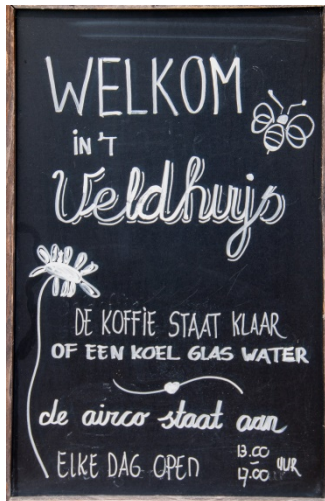 WELKOM
in 't
Veldhuijs
DE KOFFIE STAAT KLAAR
OF EEN KOEL GLAS WATER
de airco staat aan
ELKE DAG OPEN 13.00 – 17.00 UUR